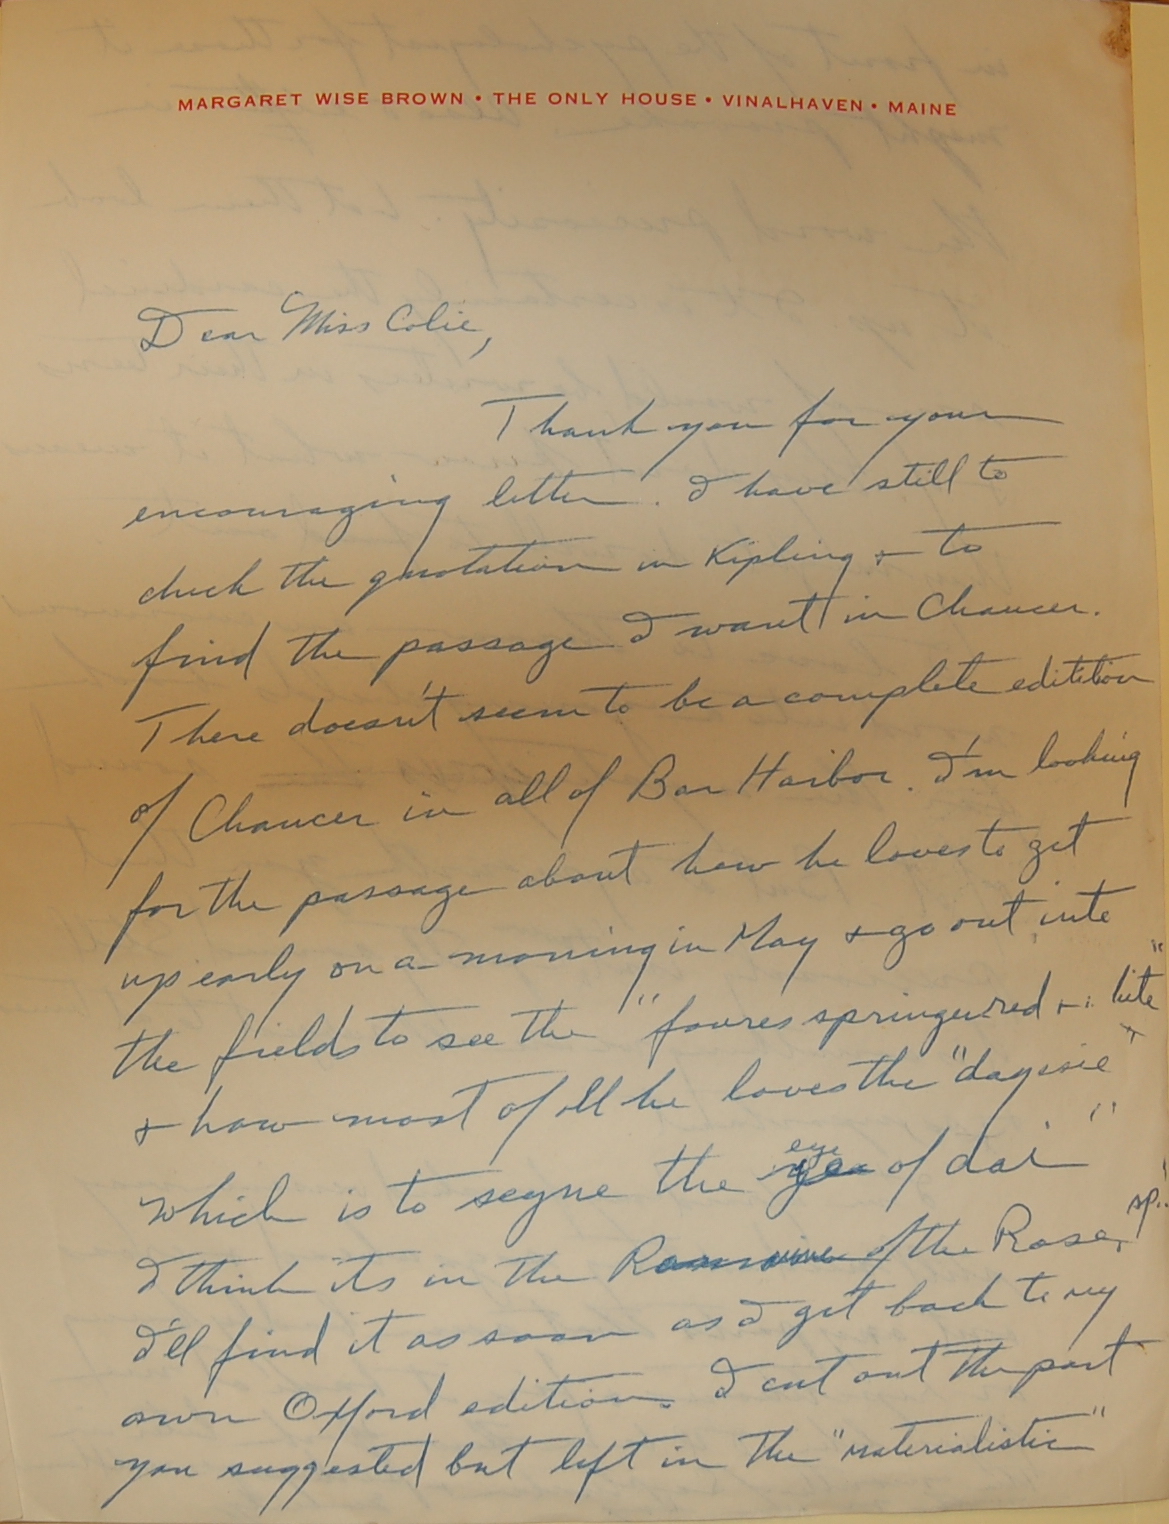 MARGARET WISE BROWN • THE ONLY HOUSE • VINALHAVEN • MAINE
Dear Miss Colie,
Thank you for your
encouraging letter. I have still to
check the quotation in Kipling & to
find the passage I want in Chaucer.
There doesn't seem to be a complete editition
of Chaucer in all of Bar Harbor. I'm looking
for the passage about how he loves to get
up early on a morning in May & go out into
the fields to see the "floures springe red &
& how most of all he loves the "dayesie"
which is to seyne the eye of dai"
I think its in the of the Rose, sp.
I'll find it as soon as I get back to my
own Oxford edition. I cut out the part
you suggested but left in the "materialistic"